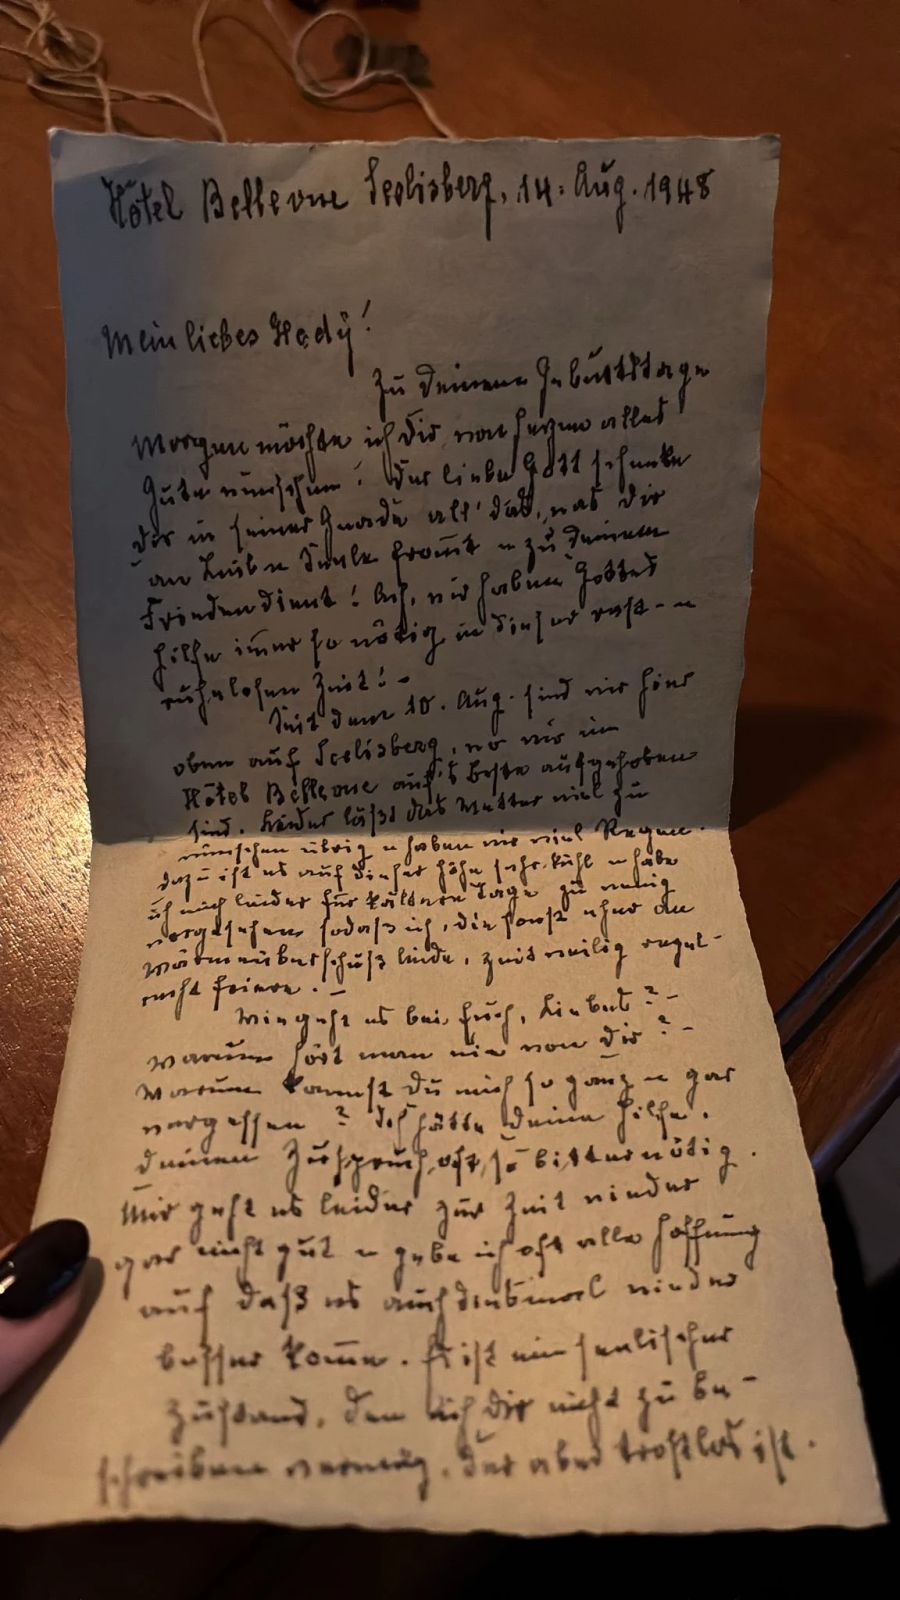 Hôtel Bellevue Seelisberg, 14. Aug. 1948
Mein liebes Hedÿ!
Zu Deinem Geburtstage
Morgen möchte ich Dir von Herzen alles
Gute wünschen! Der liebe Gott schenke
Dir in seiner Gnade all' das, was Dir
an Leib u Seele from̅t u zu Deinem
Frieden dient! Ach, wir haben Gottes
Hilfe im̅er so nötig in dieser rast- u
ruhelosen Zeit! -
Seit dem 10. Aug. sind wir hier
oben auf Seelisberg, wo wir im
Hôtel Bellevue auf's beste aufgehoben
sind. Leider läßt das Wetter viel zu
wünschen übrig u haben wir viel Regen.
dazu ist es auf dieser Höhe sehr kühl u habe
ich mich leider für kältere Tage zu wenig
vorgesehen, sodaß ich, die sonst eher an
Wärmeüberschuß leide, zeitweilig regel-
recht friere. -
Wie geht es bei Euch, Liebes? -
Warum hört man nie von Dir? -
Warum kannst Du mich so ganz u gar
vergessen? Ich hätte Deine Hilfe,
Deinen Zuspruch, oft, so bitter nötig.
Mir geht es leider zur Zeit wieder
gar nicht gut u gebe ich oft alle Hoffnung
auf daß es auch diesmal wieder
besser kom̅e. Es ist ein seelischer
Zustand, den ich Dir nicht zu be-
schreiben vermag, der aber trostlos ist.